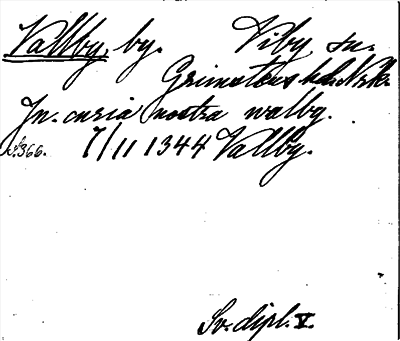 Vallby, by. Viby sn.
Grimstens hd. Nrk.
In curia nostra walby.
s. 366. 7/11 1344 Vallby.
Sv. dipl. V.